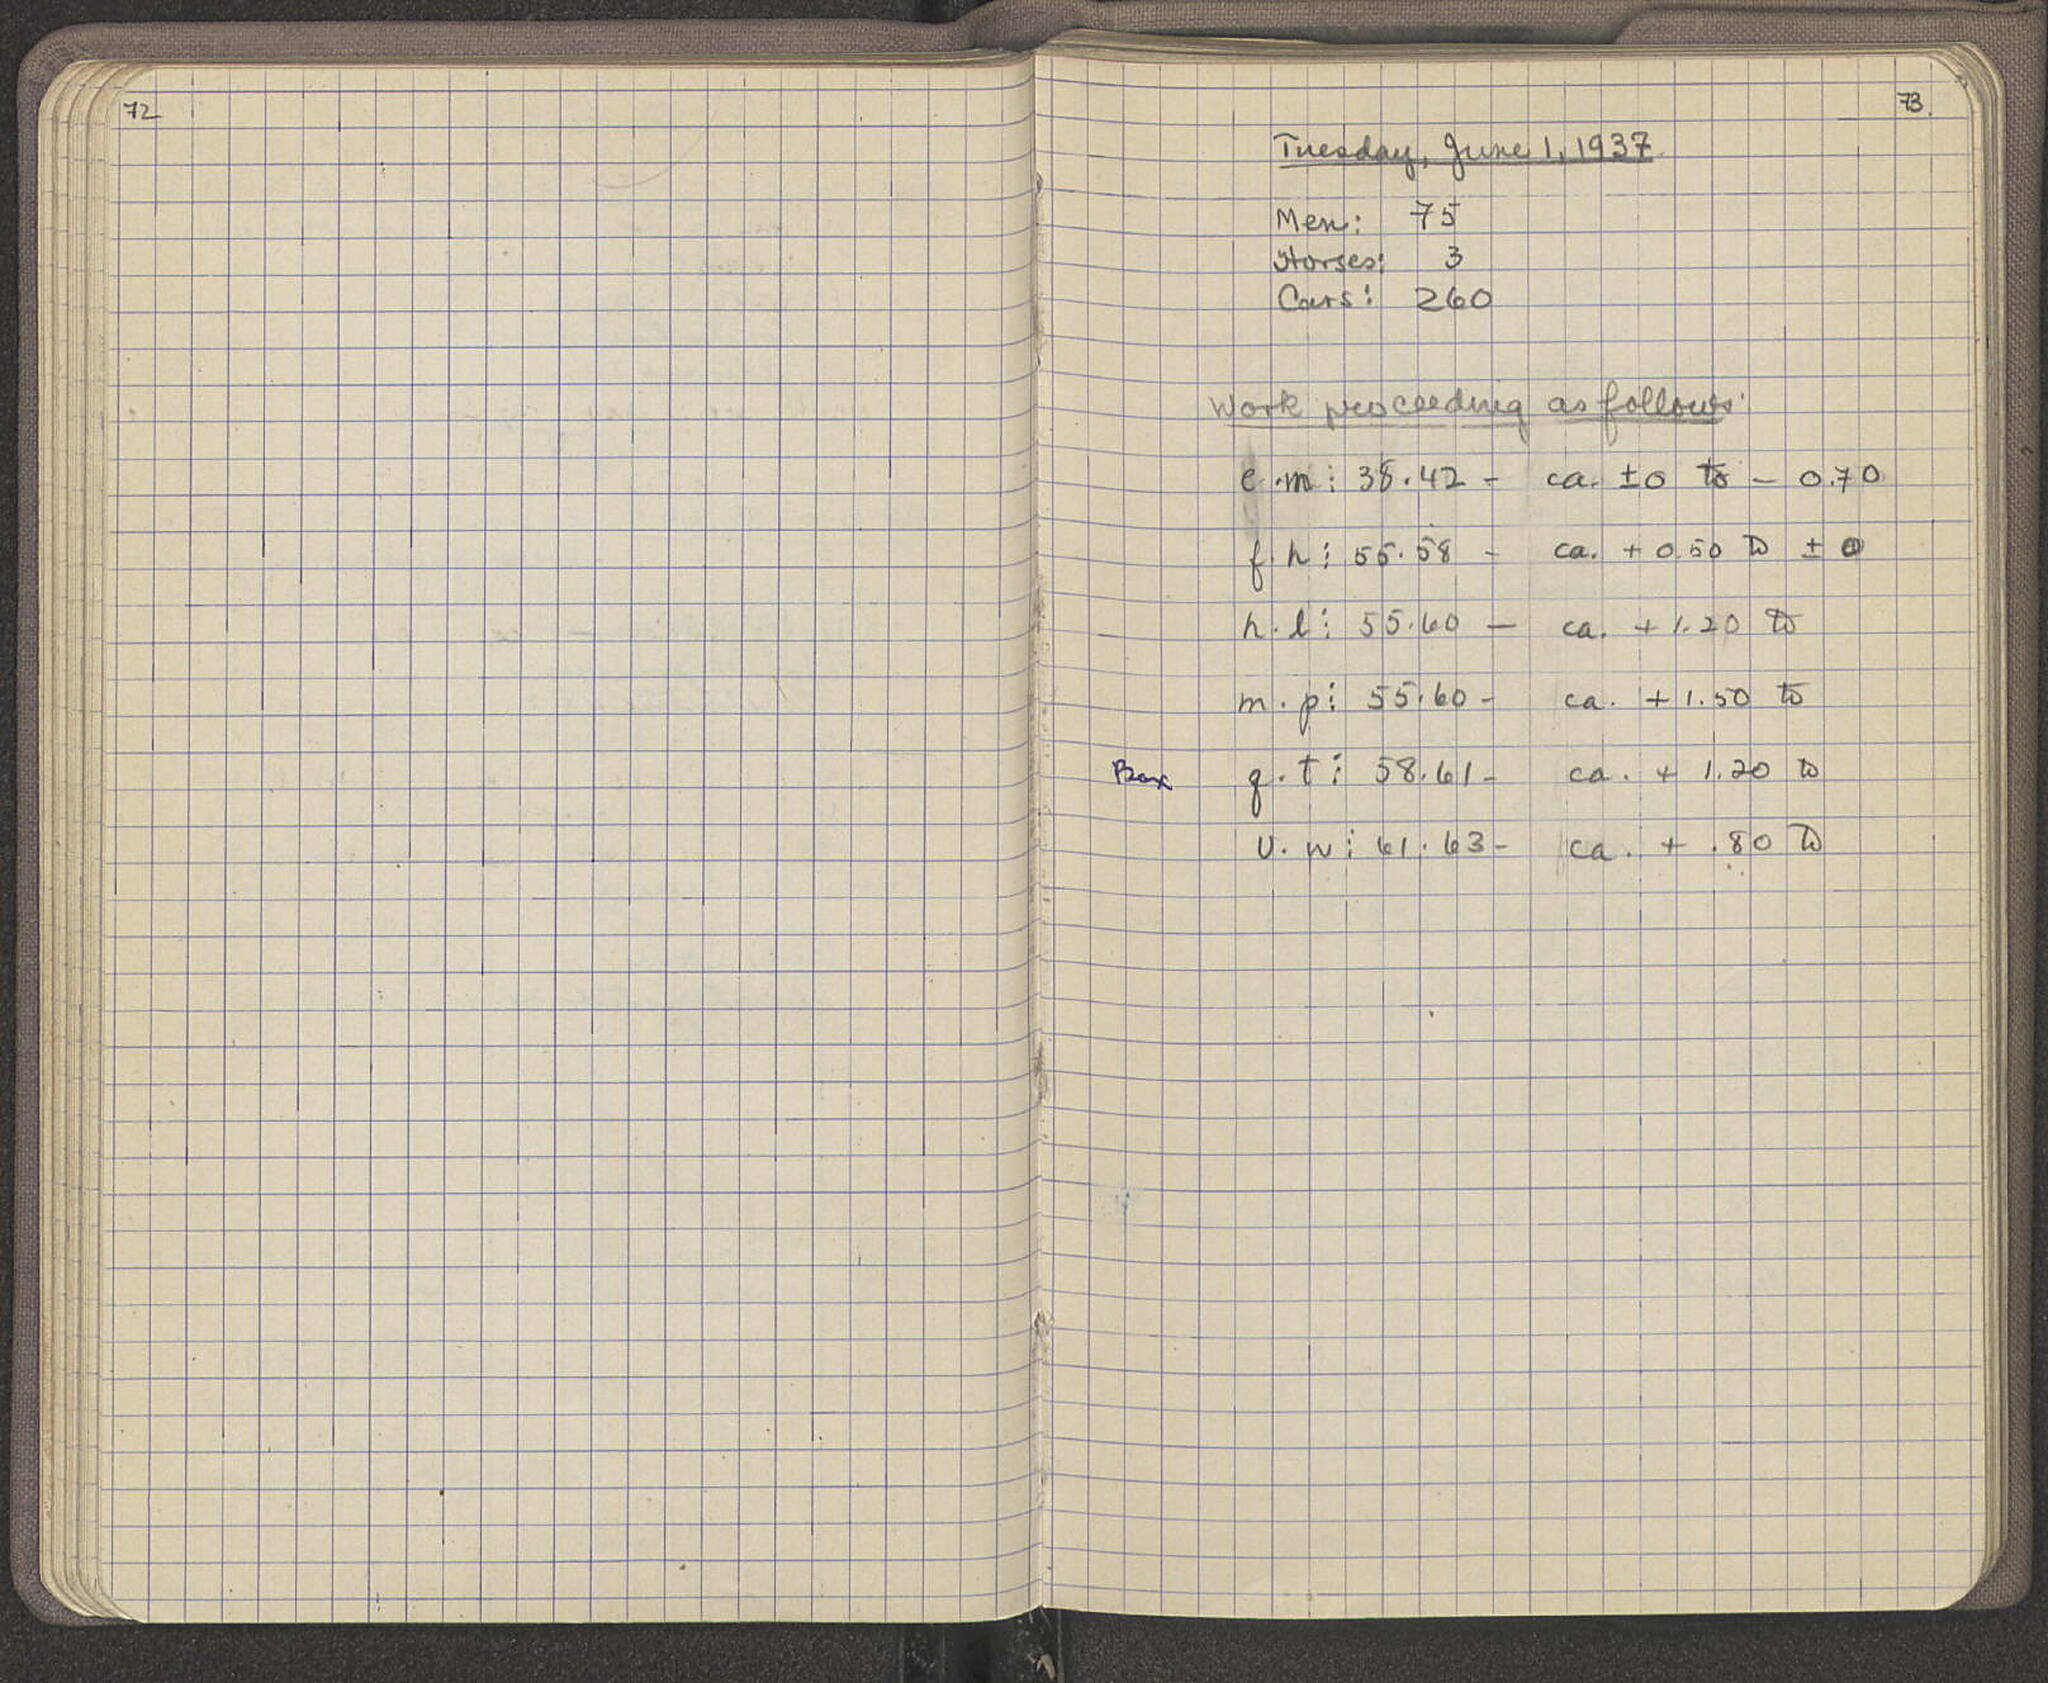 72
73.
Tuesday, June 1, 1937
Men: 75
Horses: 3
Cars: 260
Work proceeding as follows:
e.m: 38.42 - ca. ±0 to - 0.70
f.h: 55.58 - ca. + 0.50 to ± 0
h.l: 55.60 - ca. + 1.20 to
m.p: 55.60 - ca. + 1.50 to
Box q.t: 58.61 - ca. + 1.20 to
u.w: 61.63 - ca. + .80 to